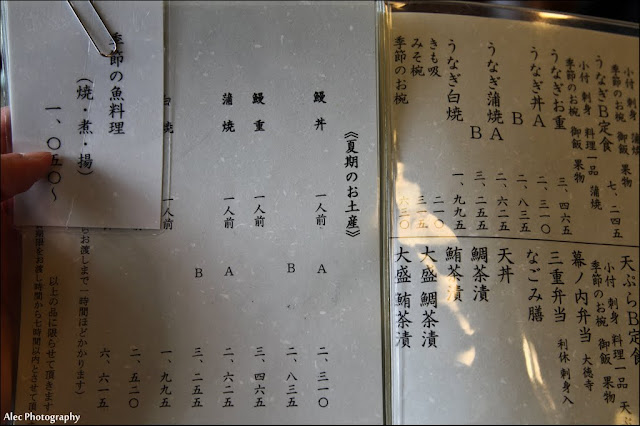 小付 刺身 蒲焼
季節のお椀 御飯 果物
うなぎB定食 七、二四五
小付 刺身 料理一品 蒲焼
季節のお椀 御飯 果物
うなぎお重 三、四六五
うなぎ丼A 二、三一〇
B 二、八三五
うなぎ蒲焼A
B 三、二五五
うなぎ白焼 一、九九五
きも吸 二一〇
みそ椀 三一五
季節のお椀 六三〇
天ぷらB定食
小付 刺身 料理一品 天ぷ
季節のお椀 御飯 果物
幕ノ内弁当 大徳寺
三重弁当 利休 刺身入
なごみ膳
天丼
鯛茶漬
鮪茶漬
大盛 鯛茶漬
大盛 鮪茶漬
《夏期のお土産》
鰻丼 一人前 A 二、三一〇
B 二、八三五
鰻重 一人前 三、四六五
蒲焼 一人前 A 二、六二五
B 三、二五五
白焼 一人前 一、九九五
二、五二〇
六、六一五
お渡しまで一時間ほどかかります)
以上の品に限らせて頂きます
期限をお渡し時間から七時間以内とさせて頂
季節の魚料理
(焼・煮・揚)
一、〇五〇〜
Alec Photography